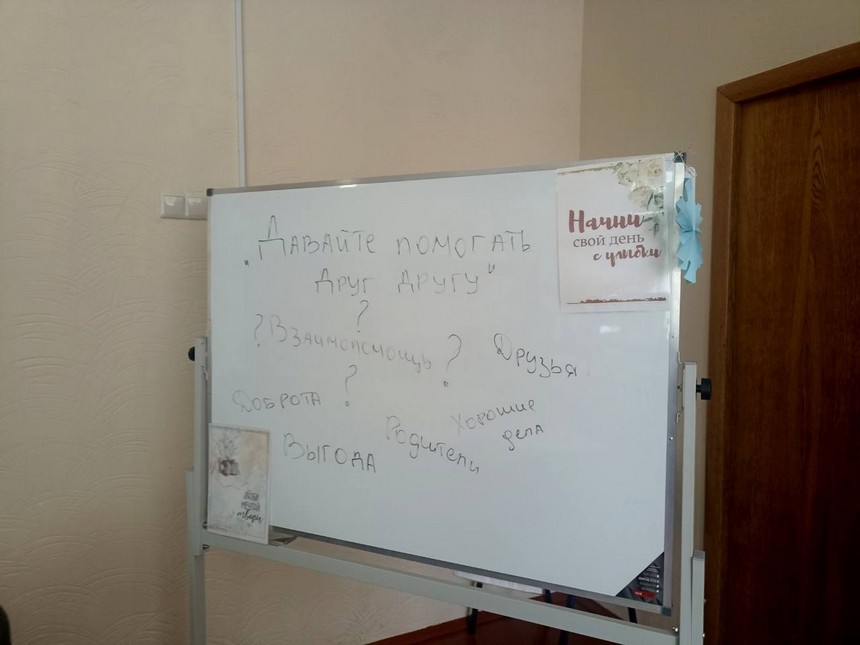 „Давайте помогать
друг другу"
?
? Взаимопомощь ?
?
Друзья
Доброта
Хорошие
дела
Родители
Выгода
Начни
свой день
с улыбки
твори